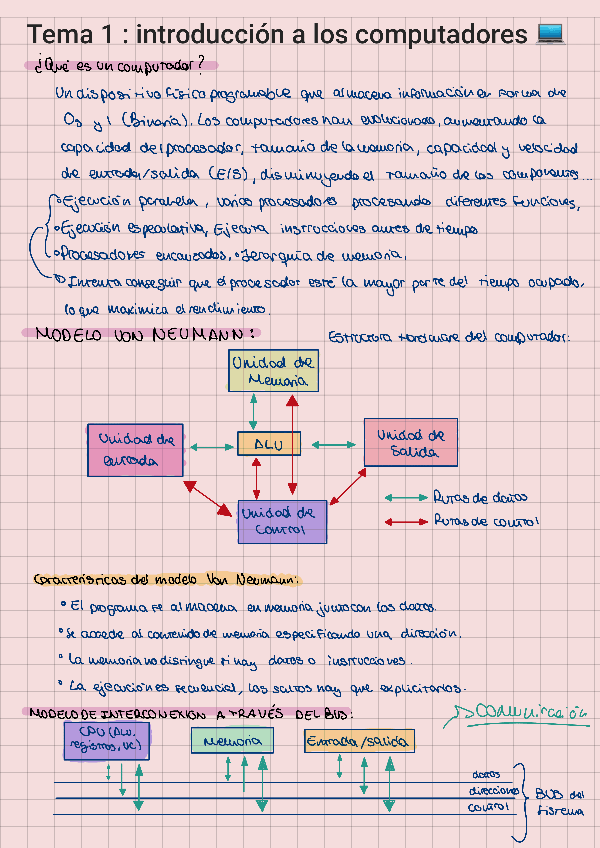 Tema 1 : introducción a los computadores 💻
¿Qué es un computador?
Un dispositivo físico programable que almacena información en forma de
0s y 1 (Binaria). Los computadores han evolucionado, aumentando la
capacidad del procesador, tamaño de la memoria, capacidad y velocidad
de entrada/salida (E/S), disminuyendo el tamaño de los componentes...
Ejecución paralela, varios procesadores procesando diferentes funciones,
Ejecución especulativa, Ejecuta instrucciones antes de tiempo
Procesadores encauzados. Jerarquía de memoria.
Intenta conseguir que el procesador esté la mayor parte del tiempo ocupado,
lo que maximiza el rendimiento.
MODELO VON NEUMANN:
Estructura Hardware del computador:
Unidad de
Memoria
Unidad de
entrada
ALU
Unidad de
Salida
Unidad de
Control
Rutas de datos
Rutas de control
Características del modelo Von Neumann:
El programa se almacena en memoria junto con los datos.
Se accede al contenido de memoria especificando una dirección.
La memoria no distingue si hay datos o instrucciones.
La ejecución es secuencial, los saltos hay que explicitarlos.
MODELO DE INTERCONEXION A TRAVÉS DEL BUS:
comunicación
CPU (ALU,
registros, UC)
Memoria
Entrada/Salida
datos
direcciones
control
BUS del
sistema